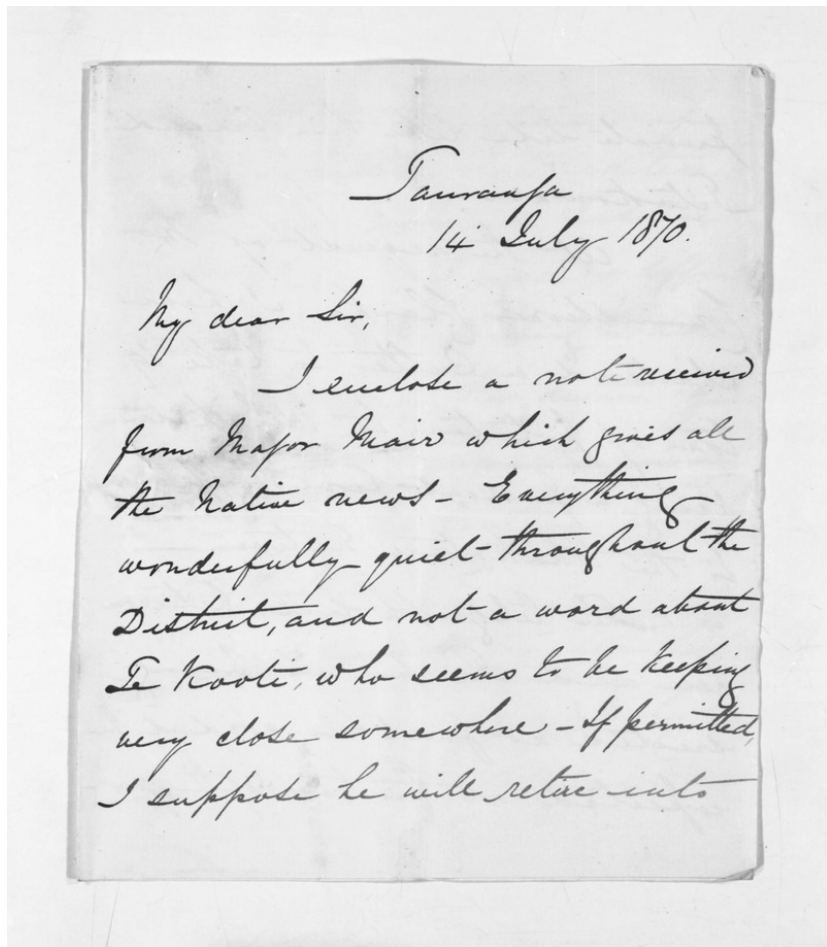 Tauranga
14 July 1870.
My dear Sir,
I enclose a note received
from Major Mair which gives all
the Native news - Everything
wonderfully quiet throughout the
District, and not a word about
Te Kooti, who seems to be keeping
very close somewhere - If permitted,
I suppose he will retire into